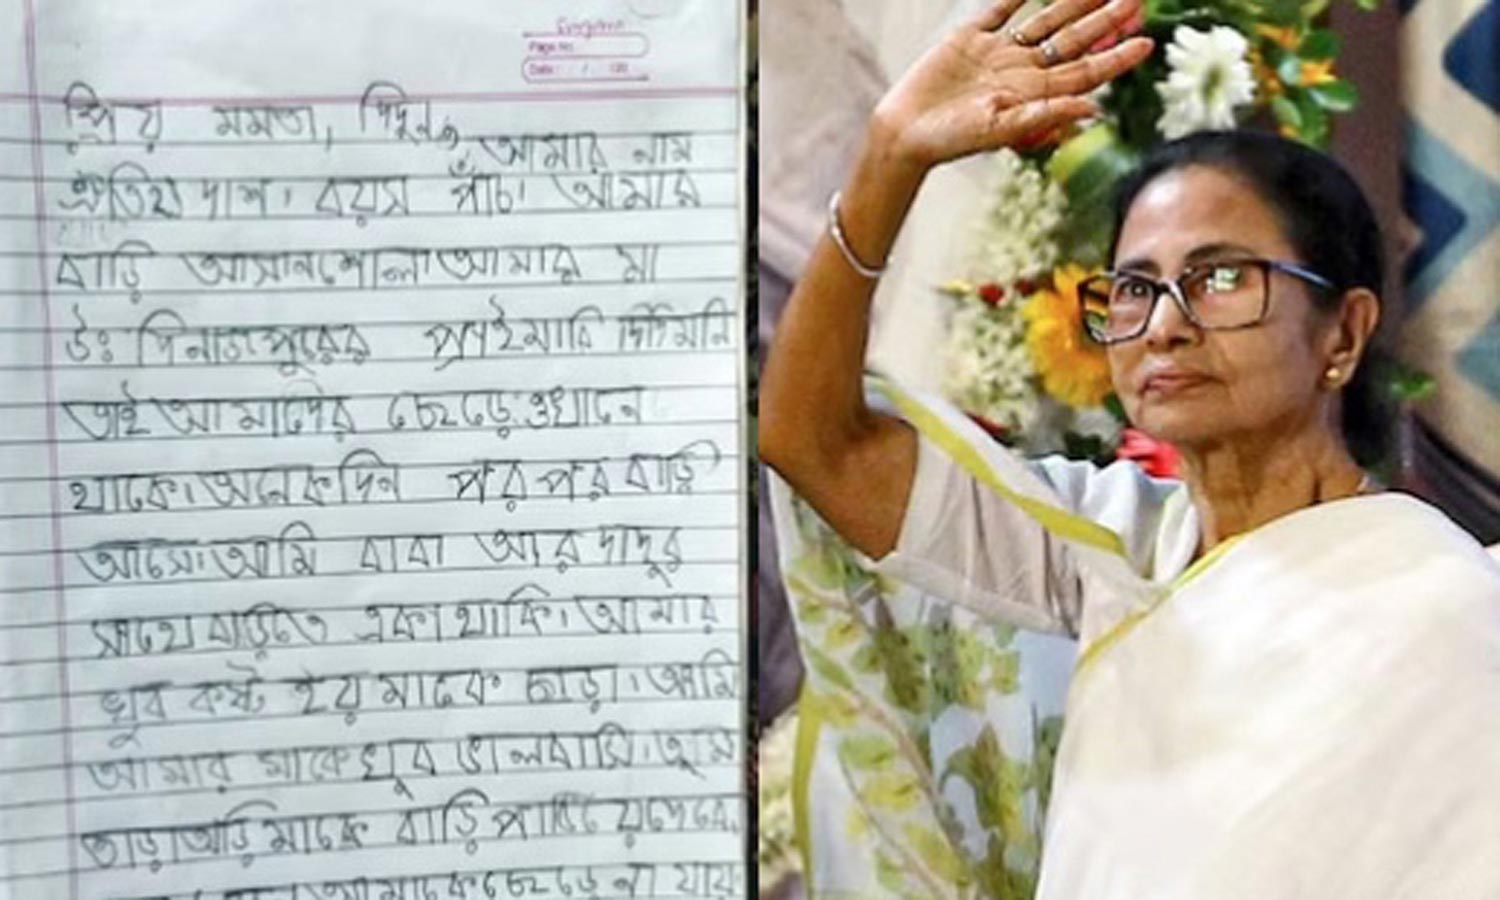 Evergreen
Page No.
Date: / /20
প্রিয় মমতা, দিদুন,
আমার নাম
ঐতিহ্য দাশ। বয়স পাঁচ। আমার
বাড়ি আসানশোল। আমার মা
উঃ দিনাজপুরের প্রাইমারি দিদিমনি
তাই আমাদের ছেড়ে ওখানে
থাকে। অনেকদিন পর পর বাড়ি
আসে। আমি বাবা আর দাদুর
সাথে বাড়িতে একা থাকি। আমার
খুব কষ্ট হয় মাকে ছাড়া। আমি
আমার মাকে খুব ভালবাসি। তুমি
তাড়াতাড়ি মাকে বাড়ি পাঠিয়ে দেবে,
আমাকে ছেড়ে না যায়